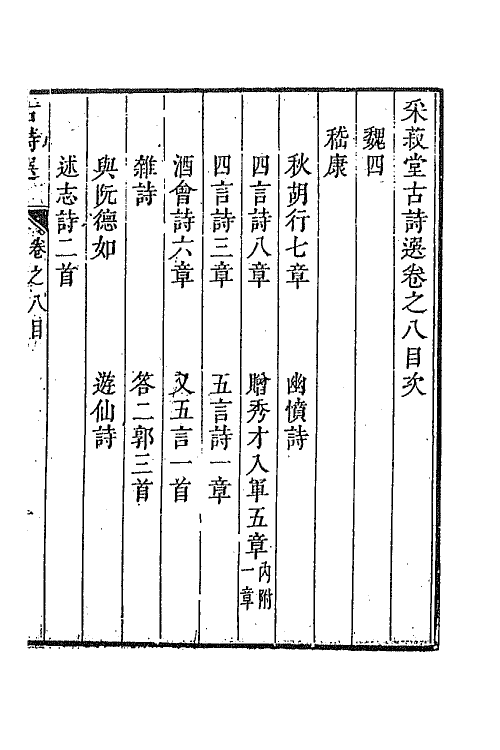 采菽堂古詩選卷之八目次
魏四
嵇康
秋胡行七章　幽憤詩
四言詩八章　贈秀才入軍五章內附一章
四言詩三章　五言詩一章
酒會詩六章　又五言一首
雜詩　答二郭三首
與阮德如　遊仙詩
述志詩二首
古詩選　卷之八目